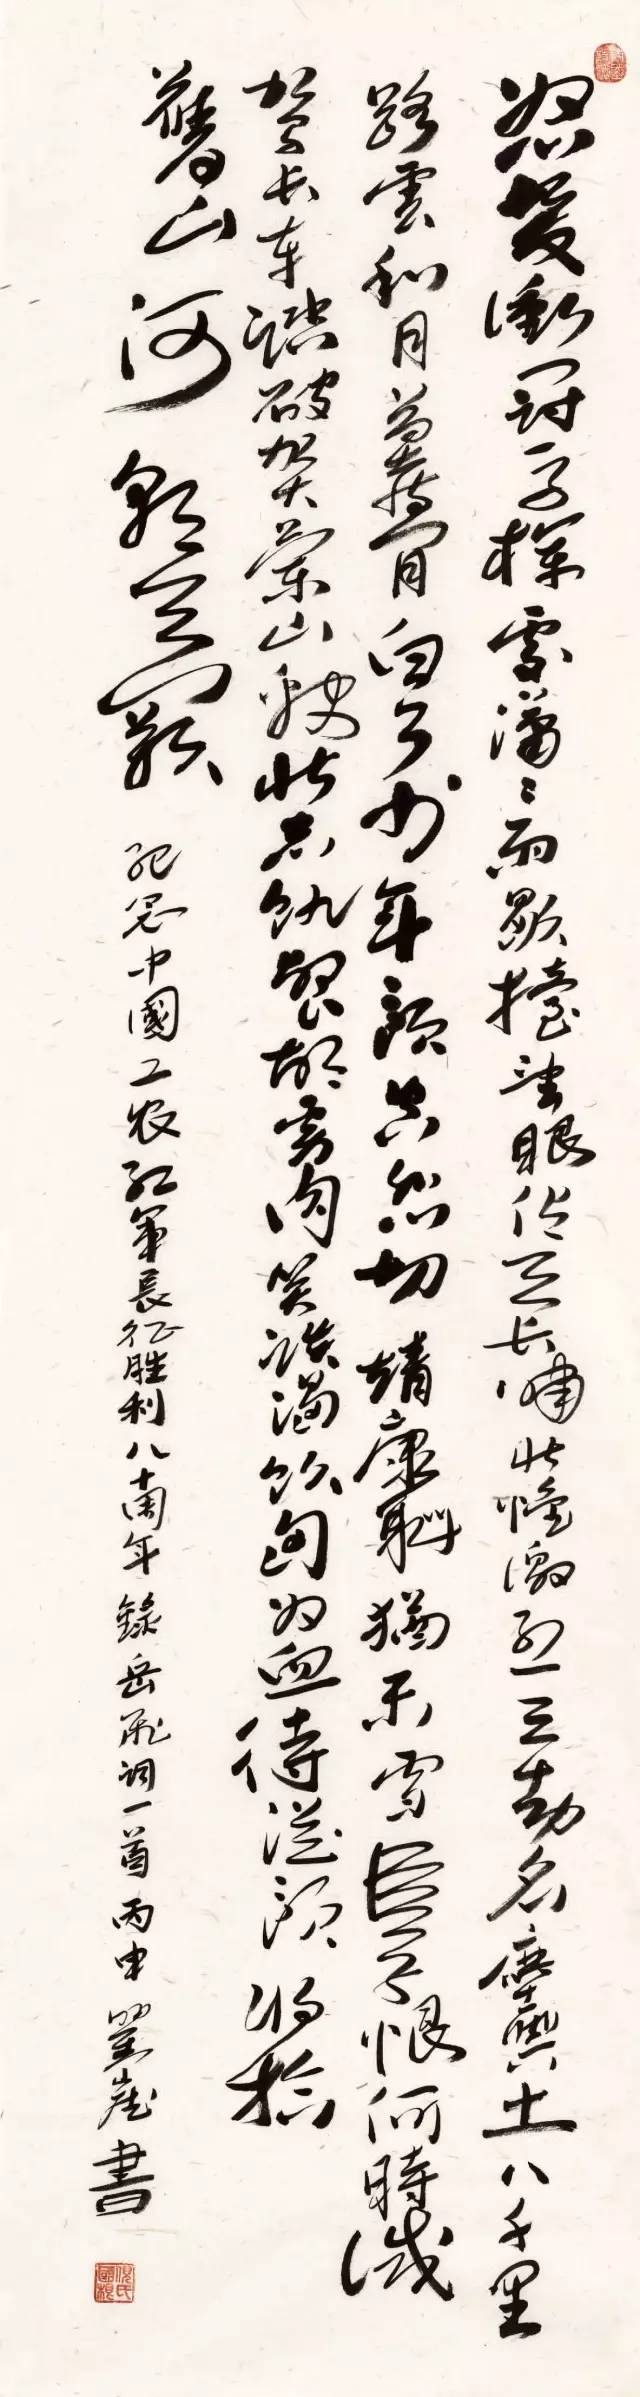 怒髮衝冠凭欄處瀟〻雨歇擡望眼仰天長嘯壯懷激烈三十功名塵與土八千里
路雲和月莫等閒白了少年頭空悲切靖康恥猶未雪臣子恨何時滅
駕長車踏破賀蘭山缺壯志飢餐胡虜肉笑談渴飲匈奴血待從頭收拾
舊山河朝天闕
紀念中國工农紅軍長征胜利八十周年錄岳飛詞一首丙申崖書